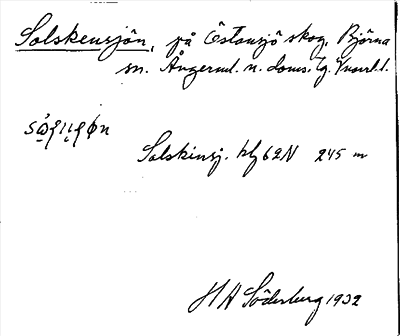 Solskensjön, på Östansjö skog, Björna
sn. Ångerml. n. doms. tg. Vnorl. l.
Solskinsj. kbl 62N 245 m
H A Söderberg 1932